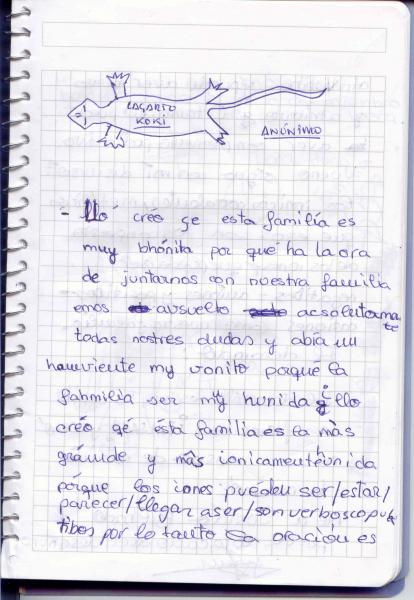 LAGARTO
KOKI
ANÓNIMO
- lló créo qe esta familía es
muy bhónita por qué ha la ora
de juntarnos con nuestra familia
emos absuelto acsolutamate
todas nostres dudas y abía un
hamviente my vonito porqué la
fahmilia ser my hunida i llo
créo qé ésta familia es la màs
gránde y mâs ionicamente hunida
porque los iones puéden ser/estar/
parecer/llegar aser/son verbos copula
tibos por lo tanto la oración es